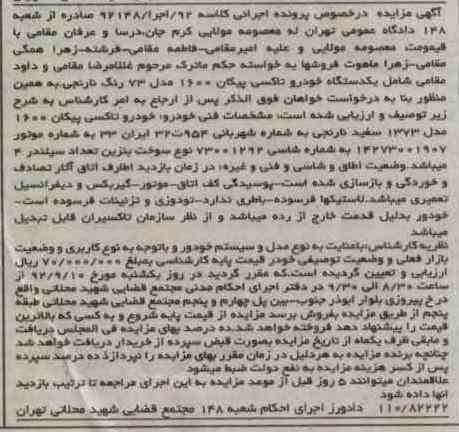 آگهی مزایده درخصوص پرونده اجرائی کلاسه ۹۲/اجرا/۹۲۱۴۸ صادره از شعبه
۱۴۸ دادگاه عمومی تهران له معصومه مولایی کرم جان،درسا و عرفان مقامی با
قیمومت معصومه مولایی و علیه امیرمقامی-فاطمه مقامی-فرشته-زهرا همگی
مقامی-زهرا ماهوت فروشها به خواسته حکم ماترک مرحوم غلامرضا مقامی و داود
مقامی شامل یکدستگاه خودرو تاکسی پیکان ۱۶۰۰ مدل ۷۳ رنگ نارنجی.به همین
منظور بنا به درخواست خواهان فوق الذکر پس از ارجاع به امر کارشناس به شرح
زیر توصیف و ارزیابی شده است: مشخصات فنی خودرو: خودرو تاکسی پیکان ۱۶۰۰
مدل ۱۳۷۳ سفید نارنجی به شماره شهربانی ۹۵۴ت۳۲ ایران ۳۳ به شماره موتور
۱۴۲۷۳۰۰۱۹۰۷ به شماره شاسی ۷۳۰۰۱۲۹۲ نوع سوخت بنزین تعداد سیلندر ۴
میباشد.وضعیت اطاق و شاسی و فنی و غیره: در زمان بازدید اطراف اتاق آثار تصادف
و خوردگی و بازسازی شده است-پوسیدگی کف اتاق-موتور-گیربکس و دیفرانسیل
تعمیری میباشد.لاستیکها فرسوده-باطری ندارد-تودوزی و تزئینات فرسوده است-
خودور بدلیل قدمت خارج از رده میباشد و از نظر سازمان تاکسیران قابل تبدیل
میباشد
نظریه کارشناس:باعنایت به نوع مدل و سیستم خودور و باتوجه به نوع کاربری و وضعیت
بازار فعلی و وضعیت توصیفی خودر قیمت پایه کارشناسی بمبلغ ۷۰/۰۰۰/۰۰۰ ریال
ارزیابی و تعیین گردیده است.که مقرر گردید در روز یکشنبه مورخ ۹۲/۹/۱۰ از
ساعت ۸/۳۰ الی ۹/۳۰ در دفتر اجرای احکام مدنی مجتمع قضایی شهید محلاتی واقع
در خ پیروزی بلوار ابوذر جنوب-بین پل چهارم و پنجم مجتمع قضایی شهید محلاتی طبقه
پنجم از طریق مزایده بفروش برسد مزایده از قیمت پایه شروع و به کسی که بالاترین
قیمت را پیشنهاد دهد فروخته خواهد شد.ده درصد بهای مزایده فی المجلس دریافت
و مابقی ظرف یکماه از تاریخ مزایده بصورت قبض سپرده از خریدار دریافت خواهد شد
چنانچه برنده مزایده به هردلیل در زمان مقرر بهای مزایده را نپردازد ده درصد سپرده
پس از کسر هزینه مزایده به نفع دولت ضبط میشود
علاقمندان میتوانند ۵ روز قبل از موعد مزایده به این اجرای مراجعه تا ترتیب بازدید
آنها داده شود
۱۱۰/۸۲۲۲۲ دادورز اجرای احکام شعبه ۱۴۸ مجتمع قضایی شهید محلاتی تهران